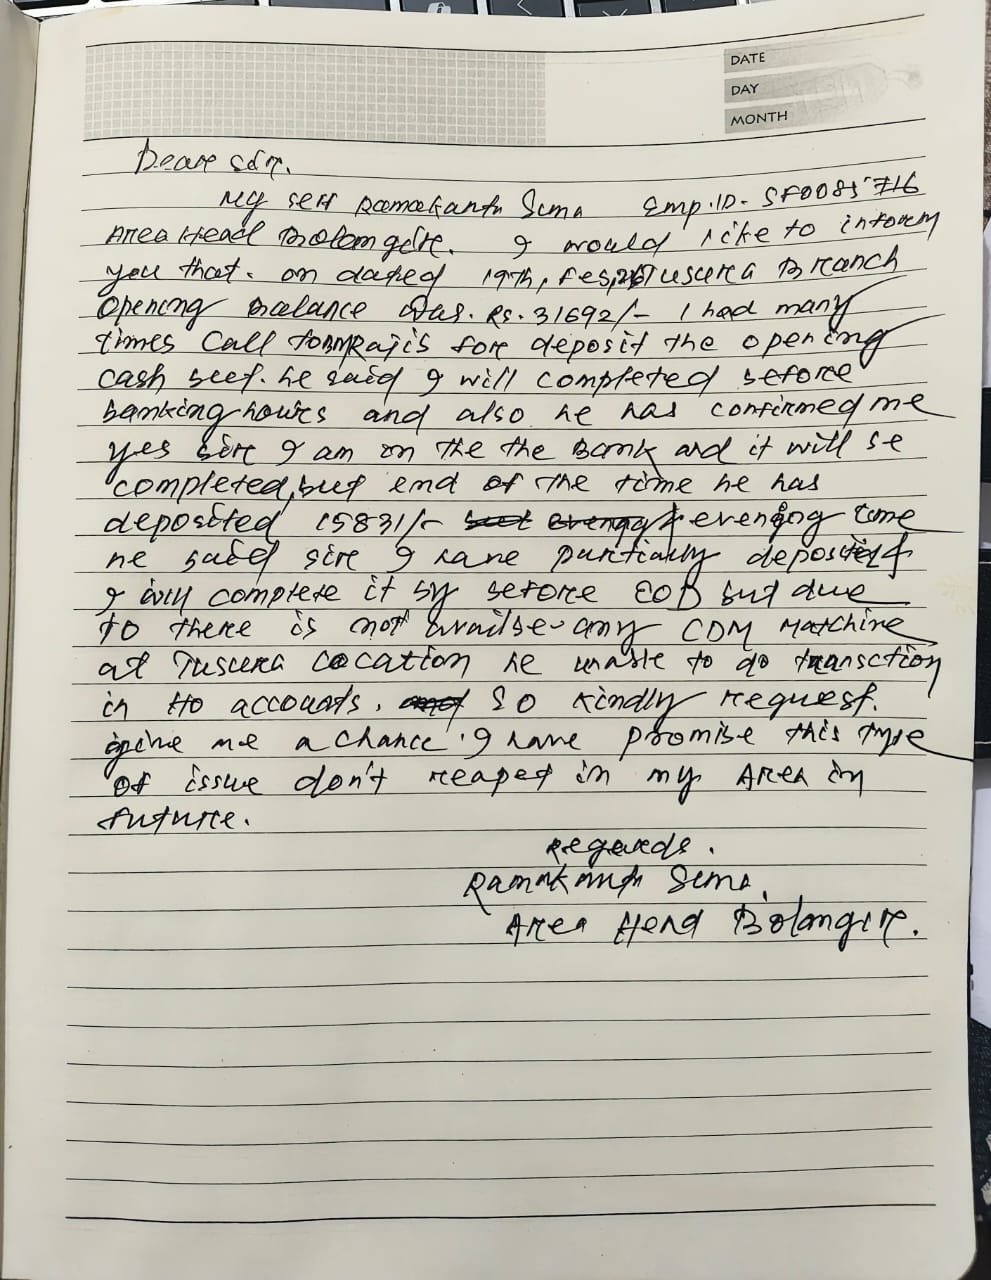 DATE
DAY
MONTH
Deare sir.
My self Ramakanta Suna Emp.ID- SF0085716
Area Head Bolangir. I would like to inform
you that. on dated 19th, Tusura Branch
Opening Balance Was. Rs. 31692/- I had many
times Call for deposit the opening
cash he said I will completed before
banking hours and also he has confirmed me
yes sire I am on the the Bank and it will be
completed, but end of the time he has
deposited 15831/- evening time
he said sire I have partially deposited &
I will complete it by before EOD but due
to there is not any CDM Matchine
at Tusura Location he unable to do transction
in Ho accounts. So kindly request.
give me a chance. I have promise this type
of issue don't reaped in my Area in
future.
Regards.
Ramakanta Suna,
Area Head Bolangir.